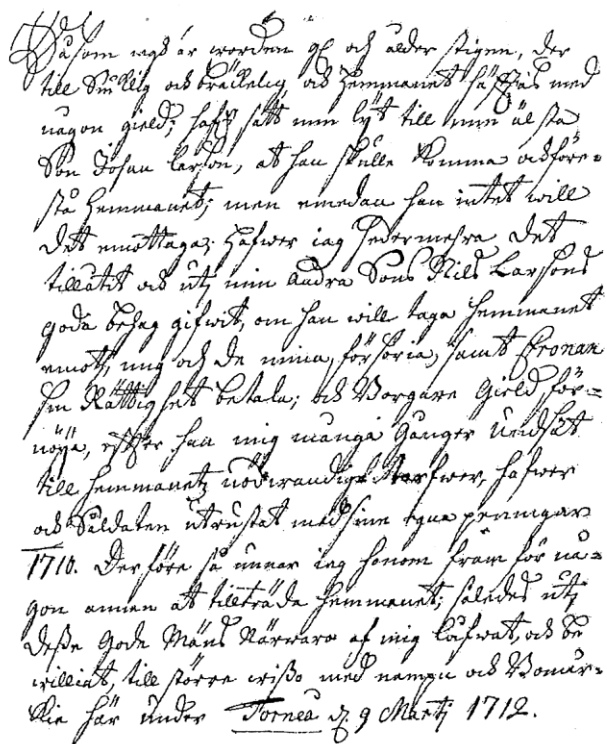 Såsom iagh är worden gl och ålder stigen, der
till Siuklig och bräckelig, och Hemmanet häfftas med
någon gield; hafr satt min lijt till min älsta
Son Johan Larson, at han skulle komma och före-
stå Hemmanet; men emedan han intet will
det emottaga: Hafwer iag hedermehra det
tillåtit och utj min Andra Sons Nils Larsons
goda behag gifwit, om han will taga Hemmanet
emot, mig och de mina försöria, samt Cronan
sin Rättighet betala; och Borgare Gield för-
nöja, effter han mig många Gånger undsatt
till Hemmanetz nödwändige Tarfwer, hafwer
och Såldaten utrustat med sine egna penningar
1710. Derföre så unnar iag honom fram för nå-
gon annan at tillträda Hemmanet; således utj
desse Gode Mäns Närwaro af mig låfwat, och be
williat, till större wisso med nampn och Bomär-
kie här under Torneå d. 9 Martj 1712.